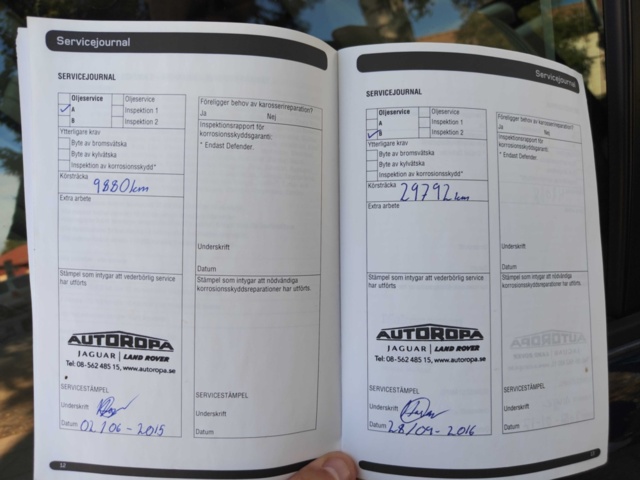 Servicejournal
SERVICEJOURNAL
Oljeservice Oljeservice
A Inspektion 1
B Inspektion 2
Ytterligare krav
Byte av bromsvätska
Byte av kylvätska
Inspektion av korrosionsskydd*
Körsträcka
9880km
Extra arbete
Stämpel som intygar att vederbörlig service
har utförts
AUTOROPA
JAGUAR | LAND ROVER
Tel: 08-562 485 15, www.autoropa.se
SERVICESTÄMPEL
Underskrift
Datum 02/06-2015
12
Föreligger behov av karosserireparation?
Ja Nej
Inspektionsrapport för
korrosionsskyddsgaranti:
* Endast Defender.
Underskrift
Datum
Stämpel som intygar att nödvändiga
korrosionsskyddsreparationer har utförts.
SERVICESTÄMPEL
Underskrift
Datum
Servicejournal
SERVICEJOURNAL
Oljeservice Oljeservice
A Inspektion 1
B Inspektion 2
Ytterligare krav
Byte av bromsvätska
Byte av kylvätska
Inspektion av korrosionsskydd*
Körsträcka
29792km
Extra arbete
Stämpel som intygar att vederbörlig service
har utförts
AUTOROPA
JAGUAR | LAND ROVER
Tel: 08-562 485 15, www.autoropa.se
SERVICESTÄMPEL
Underskrift
Datum 28/09-2016
Föreligger behov av karosserireparation?
Ja Nej
Inspektionsrapport för
korrosionsskyddsgaranti:
* Endast Defender.
Underskrift
Datum
Stämpel som intygar att nödvändiga
korrosionsskyddsreparationer har utförts.
SERVICESTÄMPEL
Underskrift
Datum